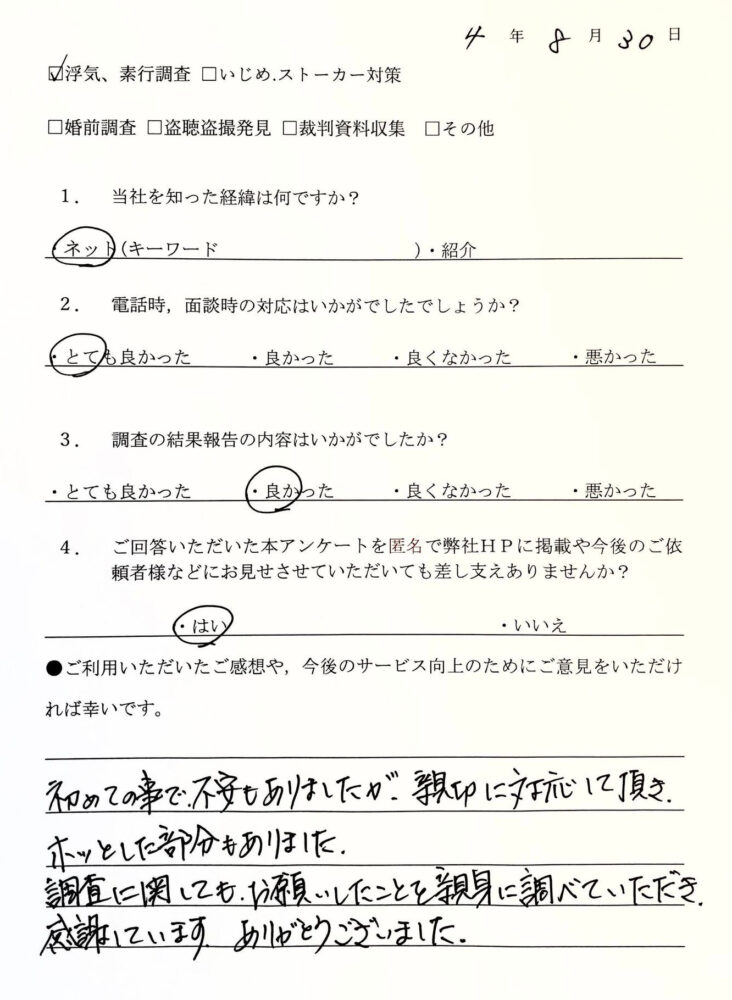 4 年 8 月 30 日
☑浮気、素行調査 □いじめ.ストーカー対策
□婚前調査 □盗聴盗撮発見 □裁判資料収集 □その他
1. 当社を知った経緯は何ですか?
・ネット(キーワード )・紹介
2. 電話時,面談時の対応はいかがでしたでしょうか?
・とても良かった ・良かった ・良くなかった ・悪かった
3. 調査の結果報告の内容はいかがでしたか?
・とても良かった ・良かった ・良くなかった ・悪かった
4. ご回答いただいた本アンケートを匿名で弊社HPに掲載や今後のご依
頼者様などにお見せさせていただいても差し支えありませんか?
・はい ・いいえ
●ご利用いただいたご感想や,今後のサービス向上のためにご意見をいただけ
れば幸いです。
初めての事で、不安もありましたが、親切に対応して頂き、
ホッとした部分もありました。
調査に関しても、お願いしたことを親身に調べていただき、
感謝しています。ありがとうございました。